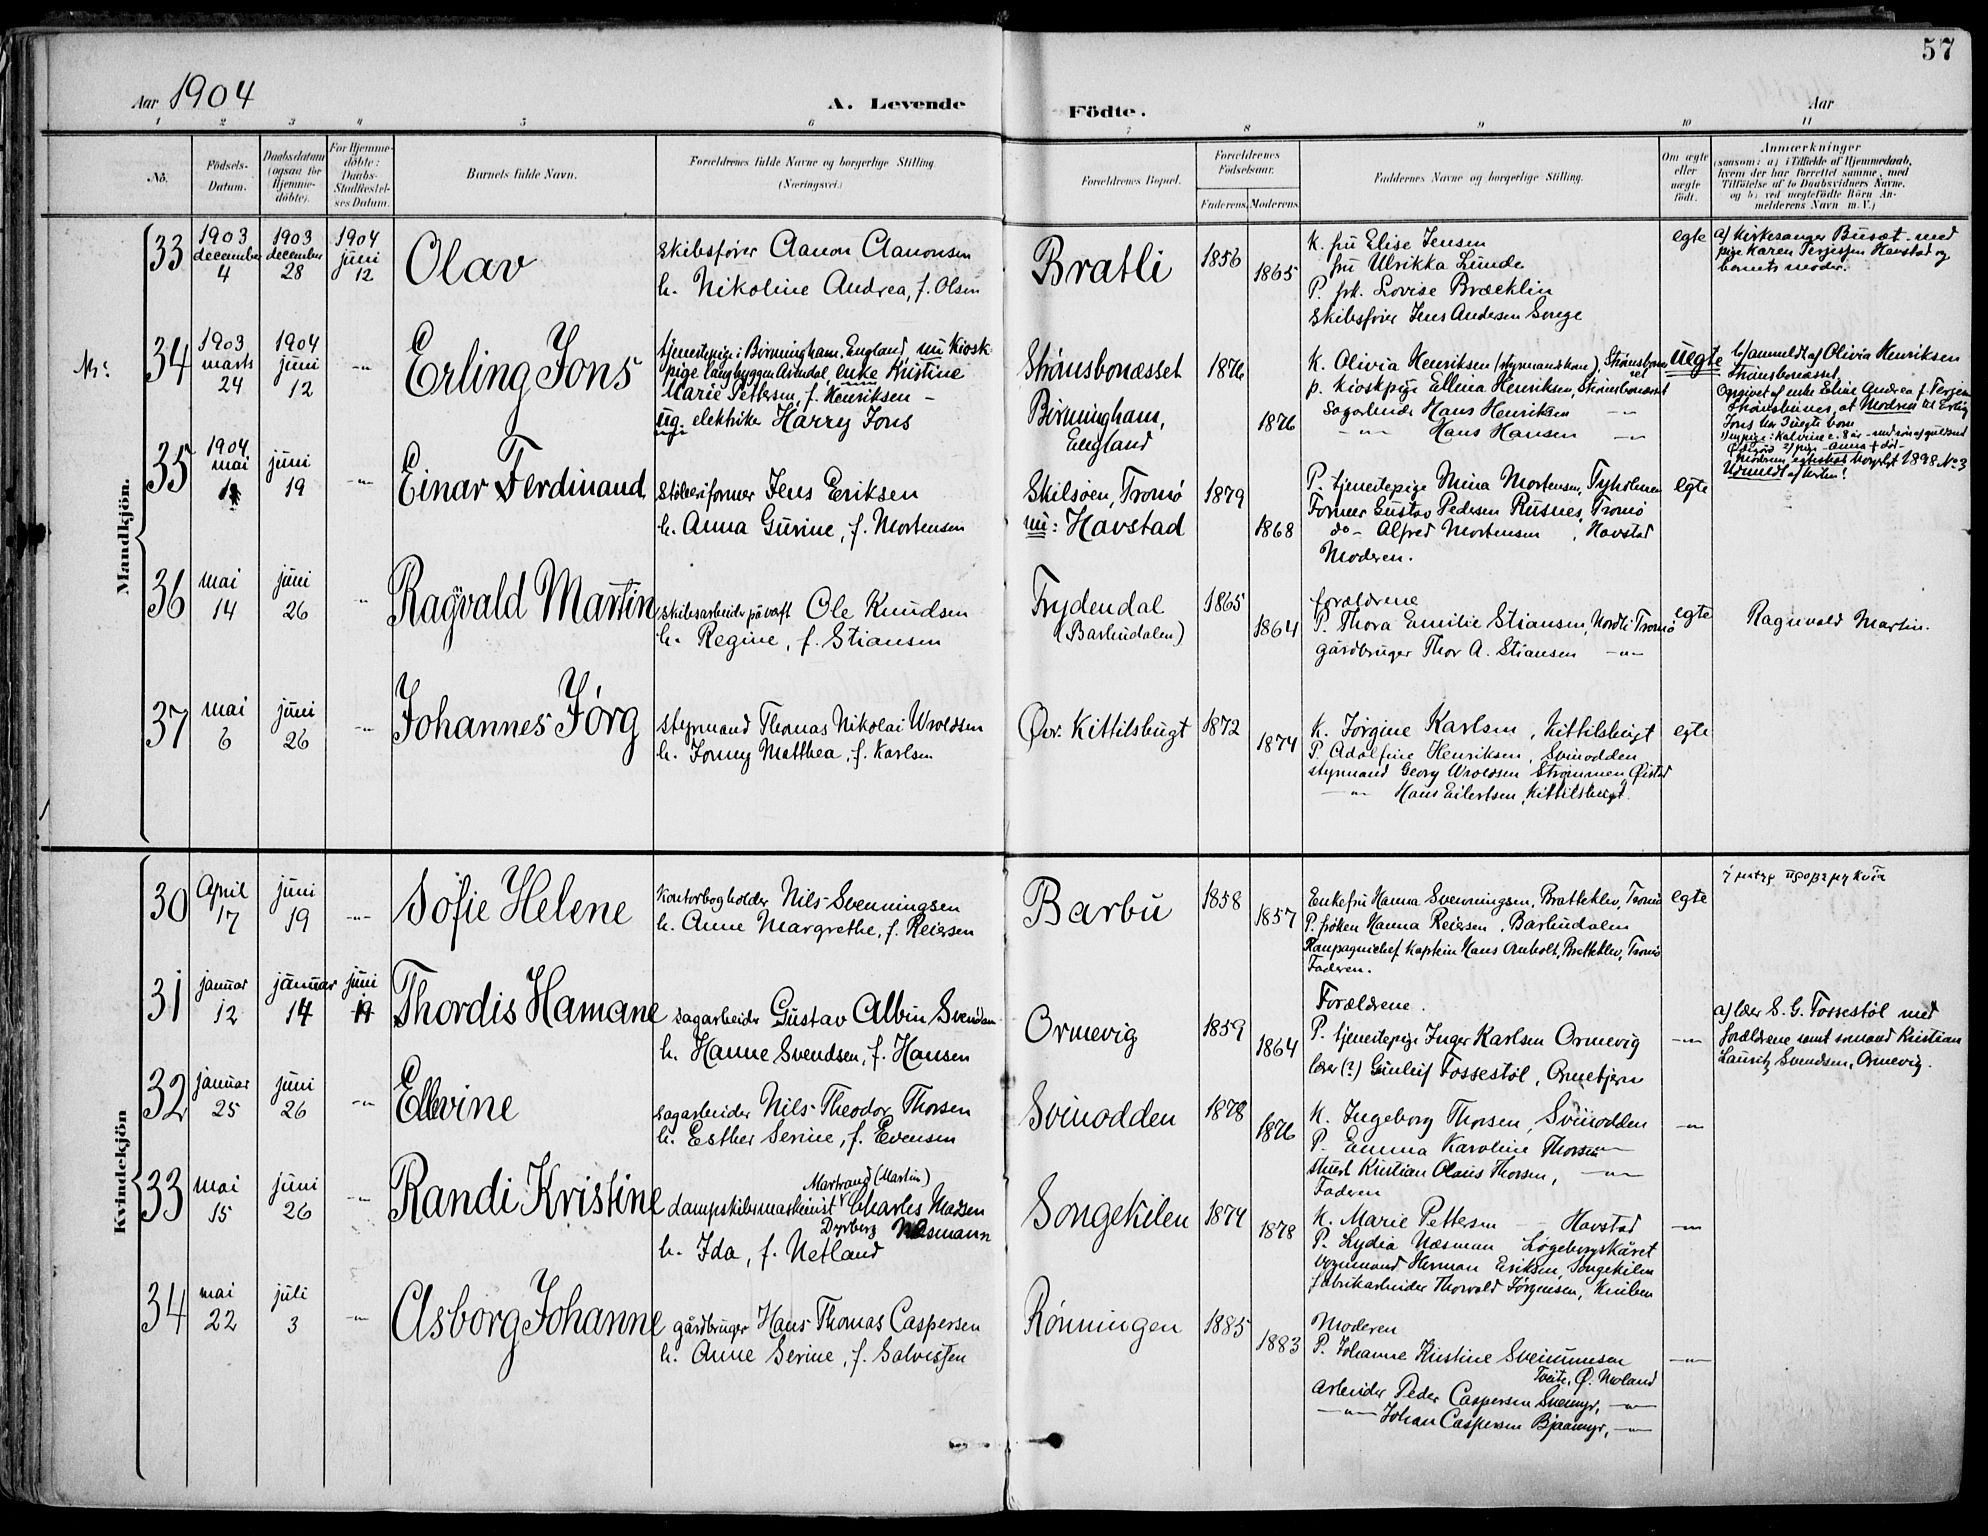 57
Aar 1904
A. Levende Födte.
Aar
1 2 3 4 5 6 7 8 9 10 11
No.
Födsels-Datum.
Daabsdatum (ogsaa for Hjemme-döbte).
For Hjemme-döbte: Daabs-Stadfæstelses Datum.
Barnets fulde Navn.
Forældrenes fulde Navne og borgerlige Stilling. (Næringsvei.)
Forældrenes Bopæl.
Forældrenes Födselsaar.
Faderens. Moderens.
Faddernes Navne og borgerlige Stilling.
Om ægte eller uægte födt.
Anmærkninger (saasom: a) i Tilfælde af Hjemmedaab, hvem der har forrettet samme, med Tilföielse af to Daabsvidners Navne, og b) ved uægtefödte Börn Anmelderens Navn m. V.)
Mandkjön.
33
1903 december 4
1903 december 28
1904 juni 12
Olav
skibsfører Aanon Aanonsen
h. Nikoline Andrea, f. Olsen
Bratli
1856
1865
K. fru Elise Jensen
fru Ulrikka Lunde
P. frk. Lovise Bræklin
skibsfører Jens Andersen Songe
egte
a) kirkesanger Busæt med
pige Karen Terjesen Havstad og
barnets moder.
34
1903 marts 24
1904 juni 12
-"-
Erling Jons
tjenestepige i Birmingham, England, nu kiosk-
pige Langbryggen Arendal, enke Kristine
Marie Pettersen, f. Henriksen -
ug. elektriker Harry Jons
Strømsbonæsset
Birmingham,
England
1876
1876
K. Olivia Henriksen (styrmandskone), Strømsbonæsset
p. kioskpige Ellina Henriksen, Strømsbonæsset
Sagarbeider Hans Henriksen -"-
-"- Hans Hansen -"-
uegte
b) anmeldt af Olivia Henriksen
Strømsbonæsset.
Opgivet af enke Eline Andrea f. Terjesen
Strømsbunes, at Modren til Erling
Jons har 2 uegte born
35
1904 mai
juni 19
-"-
Einar Ferdinand
støberiformer Jens Eriksen
h. Anna Gurine, f. Mortensen
Skilsøen, Tromø
nu: Havstad
1879
1868
P. tjenestepige Mina Mortensen, Tyholmen
Former Gustav Pedersen Rusnes, Tromø
do - Alfred Mortensen, Havstad
Moderen.
egte
36
mai 14
juni 26
-"-
Ragvald Martin
skibsarbeider på værft Ole Knudsen
h. Regine, f. Stiansen
Frydendal
(Barbudalen)
1865
1864
forældrene
P. Thora Emilie Stiansen, Nordli Tromø
gårdbruger Thor A. Stiansen -"-
egte
Ragnvald Martin.
37
mai 6
juni 26
-"-
Johannes Jörg
styrmand Thomas Nikolai Wroldsen
h. Jonny Matthea, f. Karlsen
Øvr. Kittilsbugt
1872
1874
K. Jørgine Karlsen, Kittilsbugt
P. Adolfine Henriksen, Svinodden
styrmand Georg Wroldsen Strømmen, Øistad
-"- Hans Eilertsen, Kittilsbugt.
egte
Kvindekjön
30
April 17
juni 19
-"-
Sofie Helene
Kontorbogholder Nils Svenningsen
h. Anne Margrethe, f. Reiersen
Barbu
1858
1857
Enkefru Hanna Svenningsen, Bratteklev, Tromø
P. frøken Hanna Reiersen, Barbudalen
Kaupagnichef Kaptein Hans Anholt, Bratteklev, Tromø
Faderen.
egte
31
januar 12
januar 14
juni 19
Thordis Hamane
sagarbeider Gustav Albin Svendsen
h. Hanne Svendsen, f. Hansen
Ormevig
1859
1864
Forældrene.
P. tjenestepige Inger Karlsen Ormevig
lærer (?) Gunleif Fossestøl, Ormebjern
-"-
a) lær S. G. Fossestøl med
forældrene samt sømand Kristian
Lauritz Svendsen, Ormevig.
32
januar 25
juni 26
-"-
Ellevine
sagarbeider Nils Theodor Thorsen
h. Esther Serine, f. Evensen
Svinodden
1878
1876
K. Ingeborg Thorsen, Svinodden
P. Emma Karoline Thorsen -"-
stuert Kristian Olaus Thorsen, -"-
Faderen
-"-
33
mai 15
juni 26
-"-
Randi Kristine
Martrand (Martin)
dampskibsmaskinist Charles Madsen
Dyrberg Næsmann
h. Ida, f. Netland
Songekilen
1874
1878
K. Marie Pettersen - - Havstad
P. Lydia Næsman Løgebergskåret
Vognmand Herman Eriksen, Songekilen
fabrikarbeider Thorvald Jørgensen, Kuiben
-"-
34
mai 22
juli 3
-"-
Asborg Johanne
gårdbruger Hans Thomas Caspersen
h. Anne Serine, f. Salvesen
Rönningen
1885
1883
Moderen
P. Johanne Kristine Sveinumsen
Tveite, Ø. Moland
arbeider Peder Caspersen Suemyr, -"-
-"- Johan Caspersen Bjaamyr, -"-
-"-